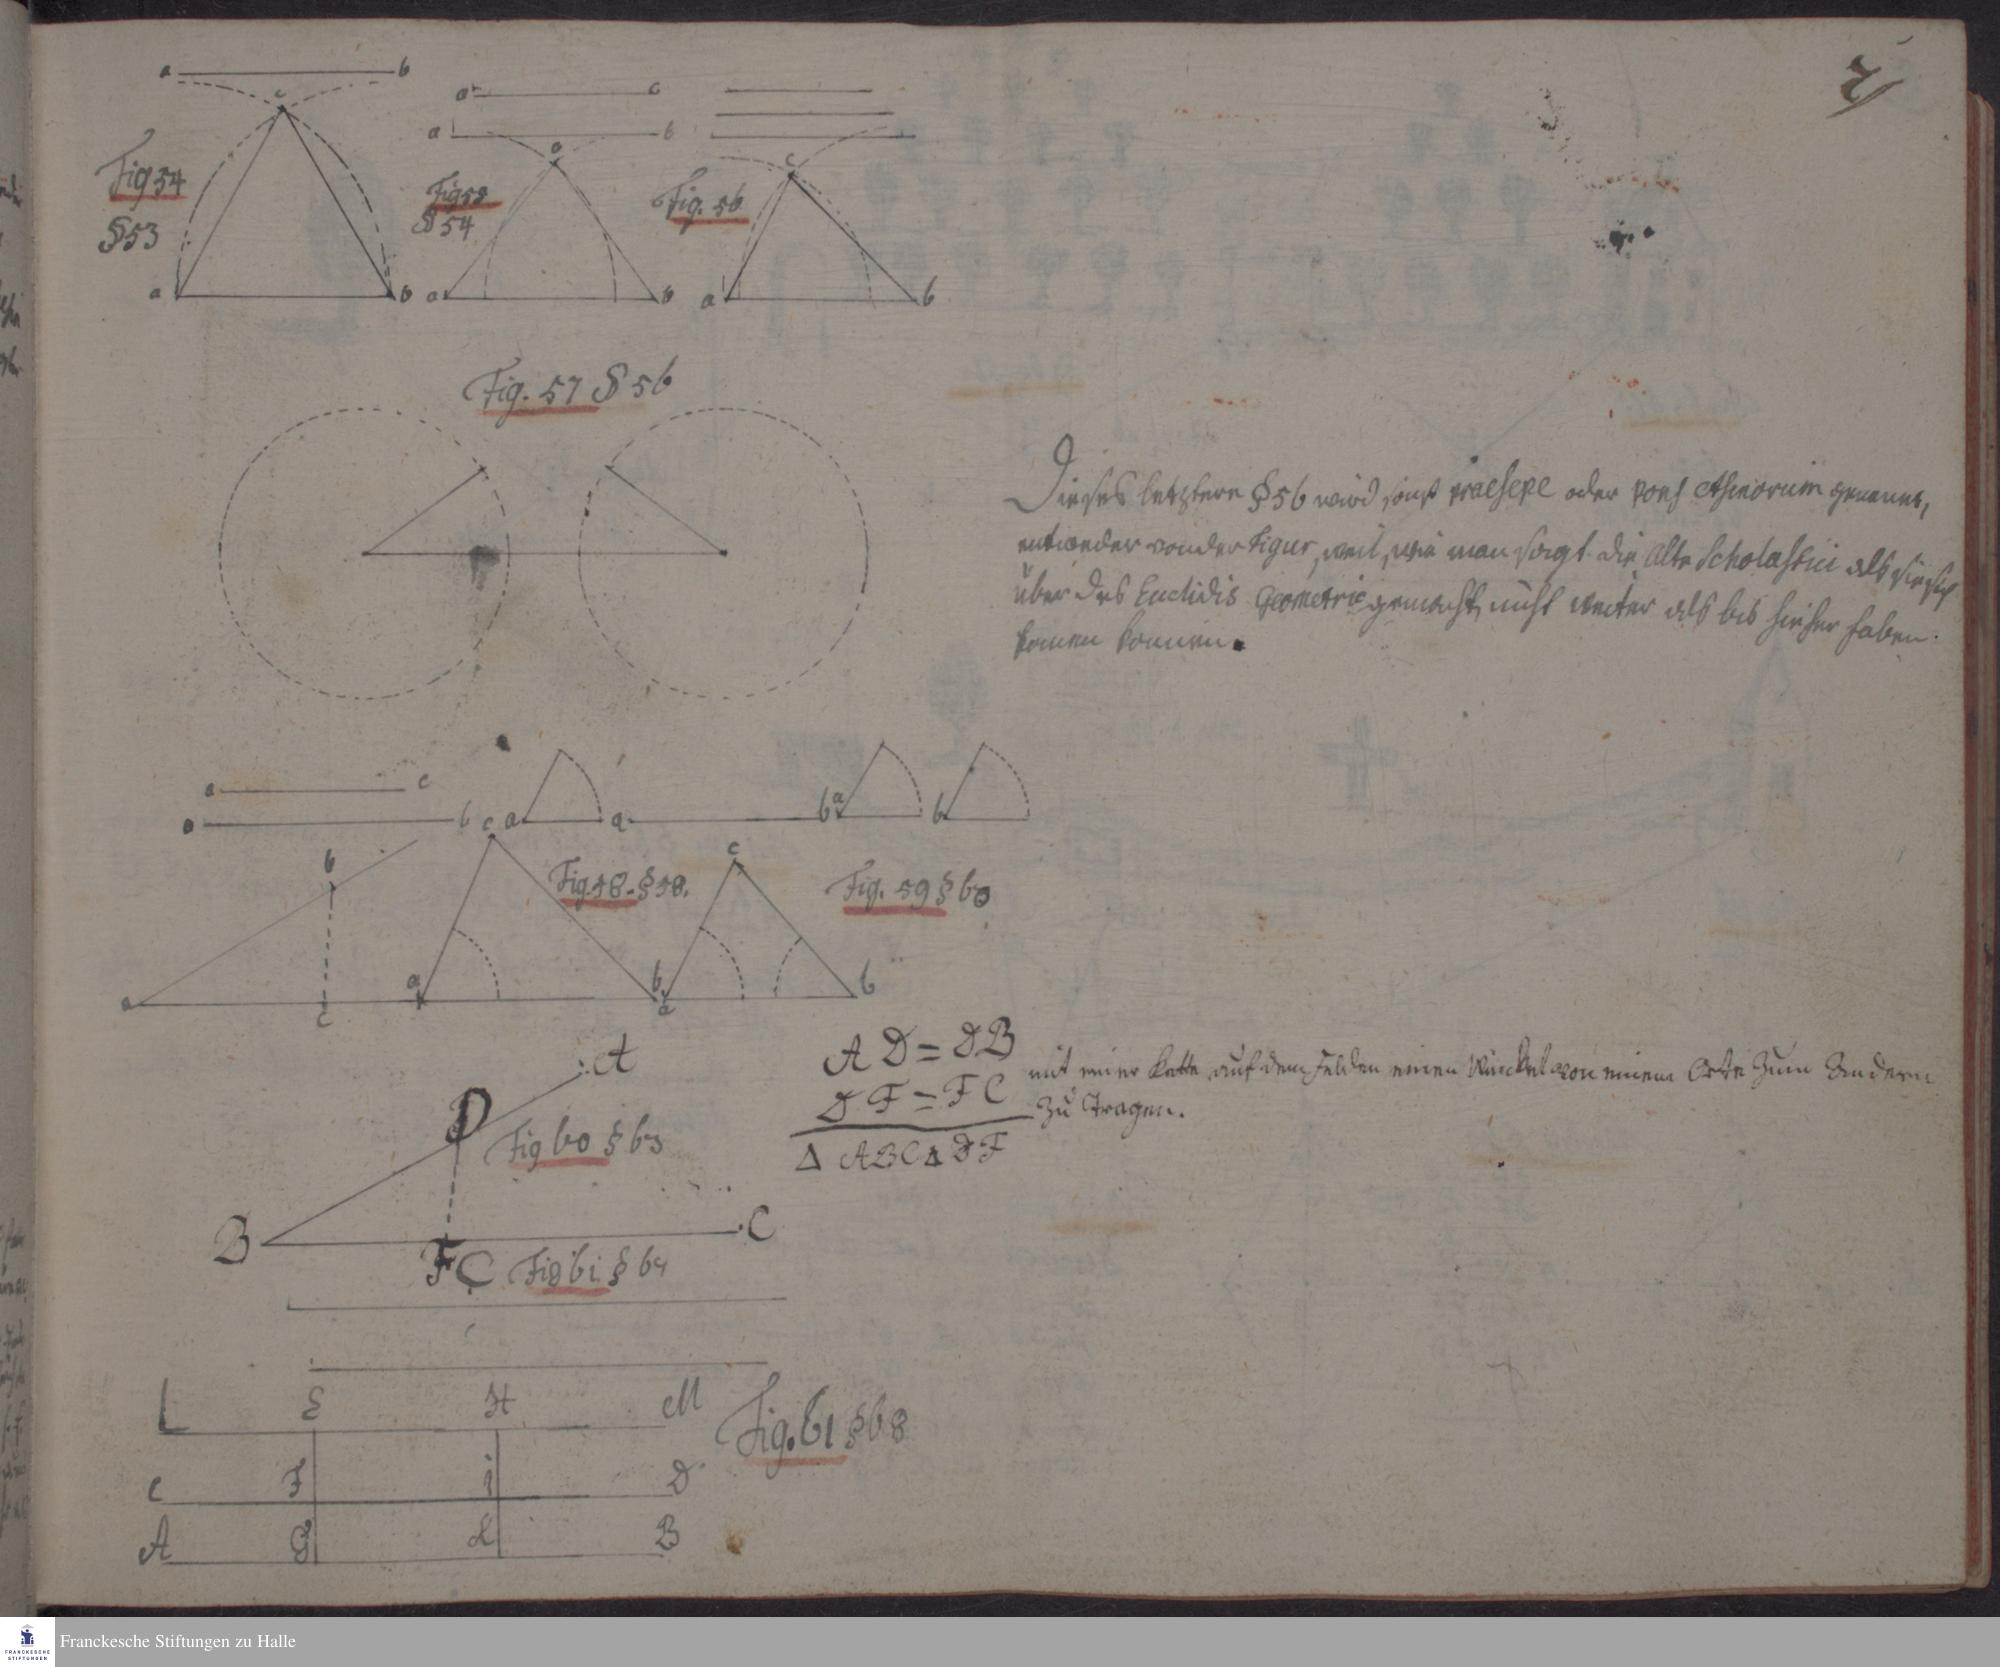 7
a b
c
Fig 54
§ 53
a b
a c
a b
c
§ 54
a b
Fig. 56
c
a b
Fig. 57 § 56
Dieses letztere § 56 wird sonst praesepe oder pons Asinorum genennet,
entweder von der Figur, weil, wie man sagt die Alte Scholastici als sie sich
über des Euclidis Geometrie gemacht, nicht weiter als bis hieher haben
komen können.
a c
a b
c a a b a b
b
Fig. 58. § 58.
c
Fig. 59 § 60
a c a b a b
A
D
Fig 60 § 63
B F C
AD = DB
DF = FC
Δ ABC Δ DF
mit einer Kette auf dem Felden einen Winckel von einem Orte zum Andern
zu Tragen.
C Fig 61 § 64
L E H M
Fig. 61 § 68
C F i D
A G K B
Franckesche Stiftungen zu Halle
FRANCKESCHE
STIFTUNGEN